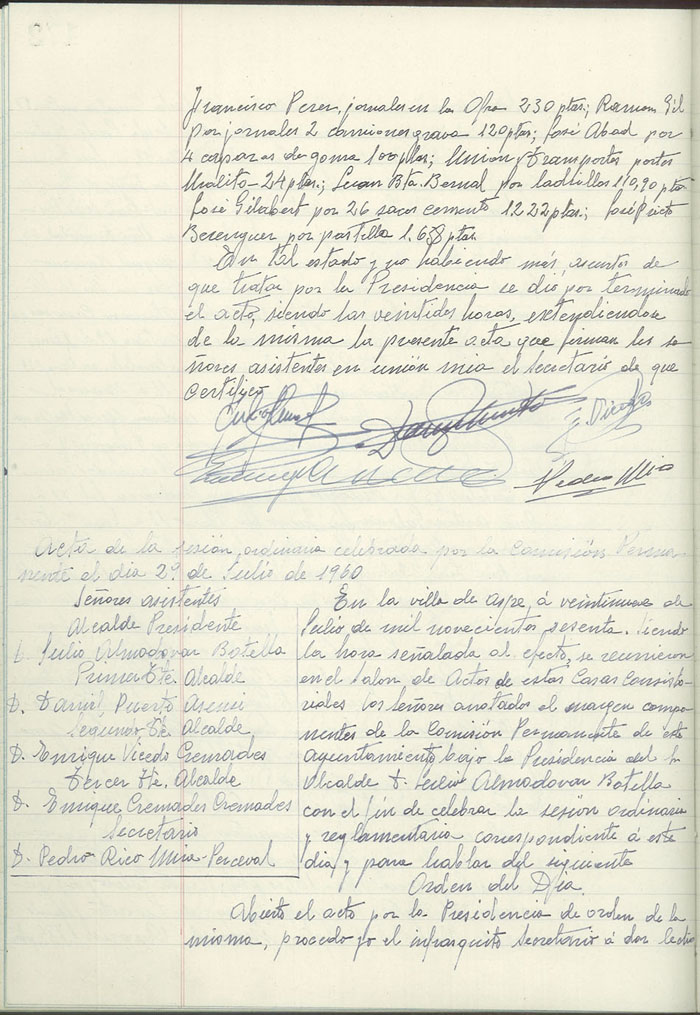 Francisco Perez, jornales en la Ofra 230 ptas.; Ramon Gil
por jornales 2 camiones grava 120 ptas; José Abad por
4 capazas de goma 100 ptas; Union y transportes portes
24 ptas.; Juan Bta. Bernal por ladrillos 110,90 ptas
José Gilabert por 26 sacos cemento 1222 ptas; José
Berenguer por 1.6 ptas.
En tal estado y no habiendo más asuntos de
que tratar por la Presidencia se dió por terminado
el acto, siendo las veintidos horas, extendiendose
de la misma la presente acta que firman los se
ñores asistentes en unión mia el Secretario de que
certifico
Pedro Mira
Acta de la sesión ordinaria celebrada por la Comisión Perma-
nente el dia 29 de Julio de 1960
Señores asistentes
Alcalde Presidente
D. Julio Almodovar Botella
Primer Tte. Alcalde
D. Daniel Puerto Asensi
Segundo Tte. Alcalde
D. Enrique Vicedo Cremades
Tercer Tte. Alcalde
D. Enrique Cremades Cremades
Secretario
D. Pedro Rico Mira-Perceval
En la villa de Aspe, á veintinueve de
Julio de mil novecientos sesenta. Siendo
la hora señalada al efecto, se reunieron
en el salon de Actos de estas Casas Consisto-
riales los señores anotados el margen compo-
nentes de la Comisión Permanente de este
ayuntamiento bajo la Presidencia del Sr
Alcalde D. Julio Almodovar Botella
con el fin de celebrar la sesión ordinaria
y reglamentaria correspondiente á este
dia, y para hablar del siguiente
Orden del Dia.
Abierto el acto por la Presidencia de orden de la
misma, procedo yo el infrasquito Secretario á dar lectu